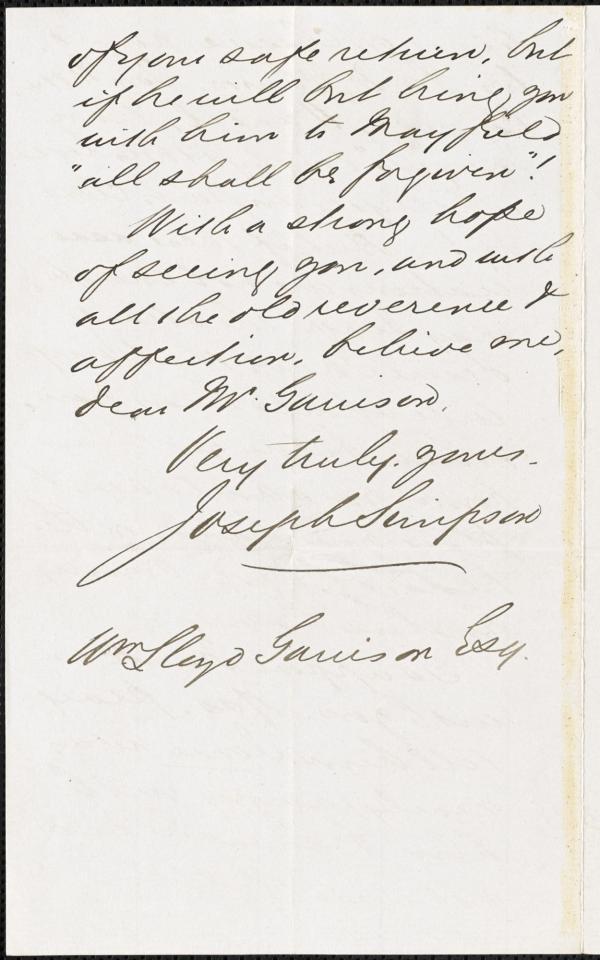 of your safe return, but
if he will but bring you
with him to Mayfield
"all shall be forgiven"!
With a strong hope
of seeing you, and with
all the old reverence &
affection, believe me,
dear Mr. Garrison,
Very truly yours.
Joseph Simpson
Wm Lloyd Garrison Esq.